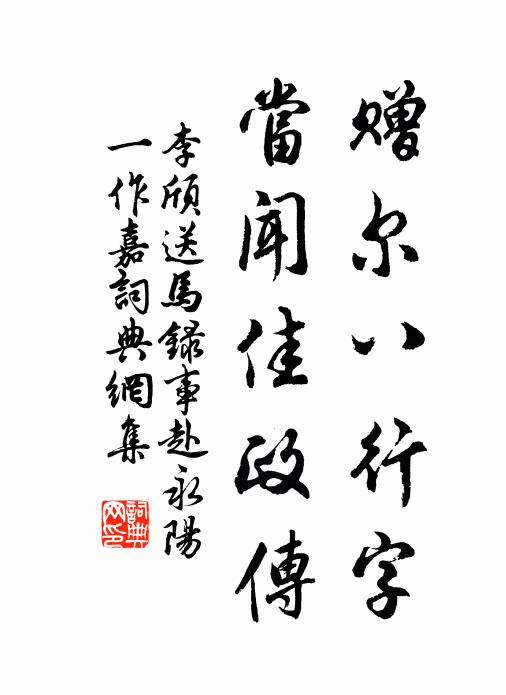 赠尔八行字
當聞佳政傳
李頎送馬錄事赴永陽
一作嘉詞典網集
詞典網印